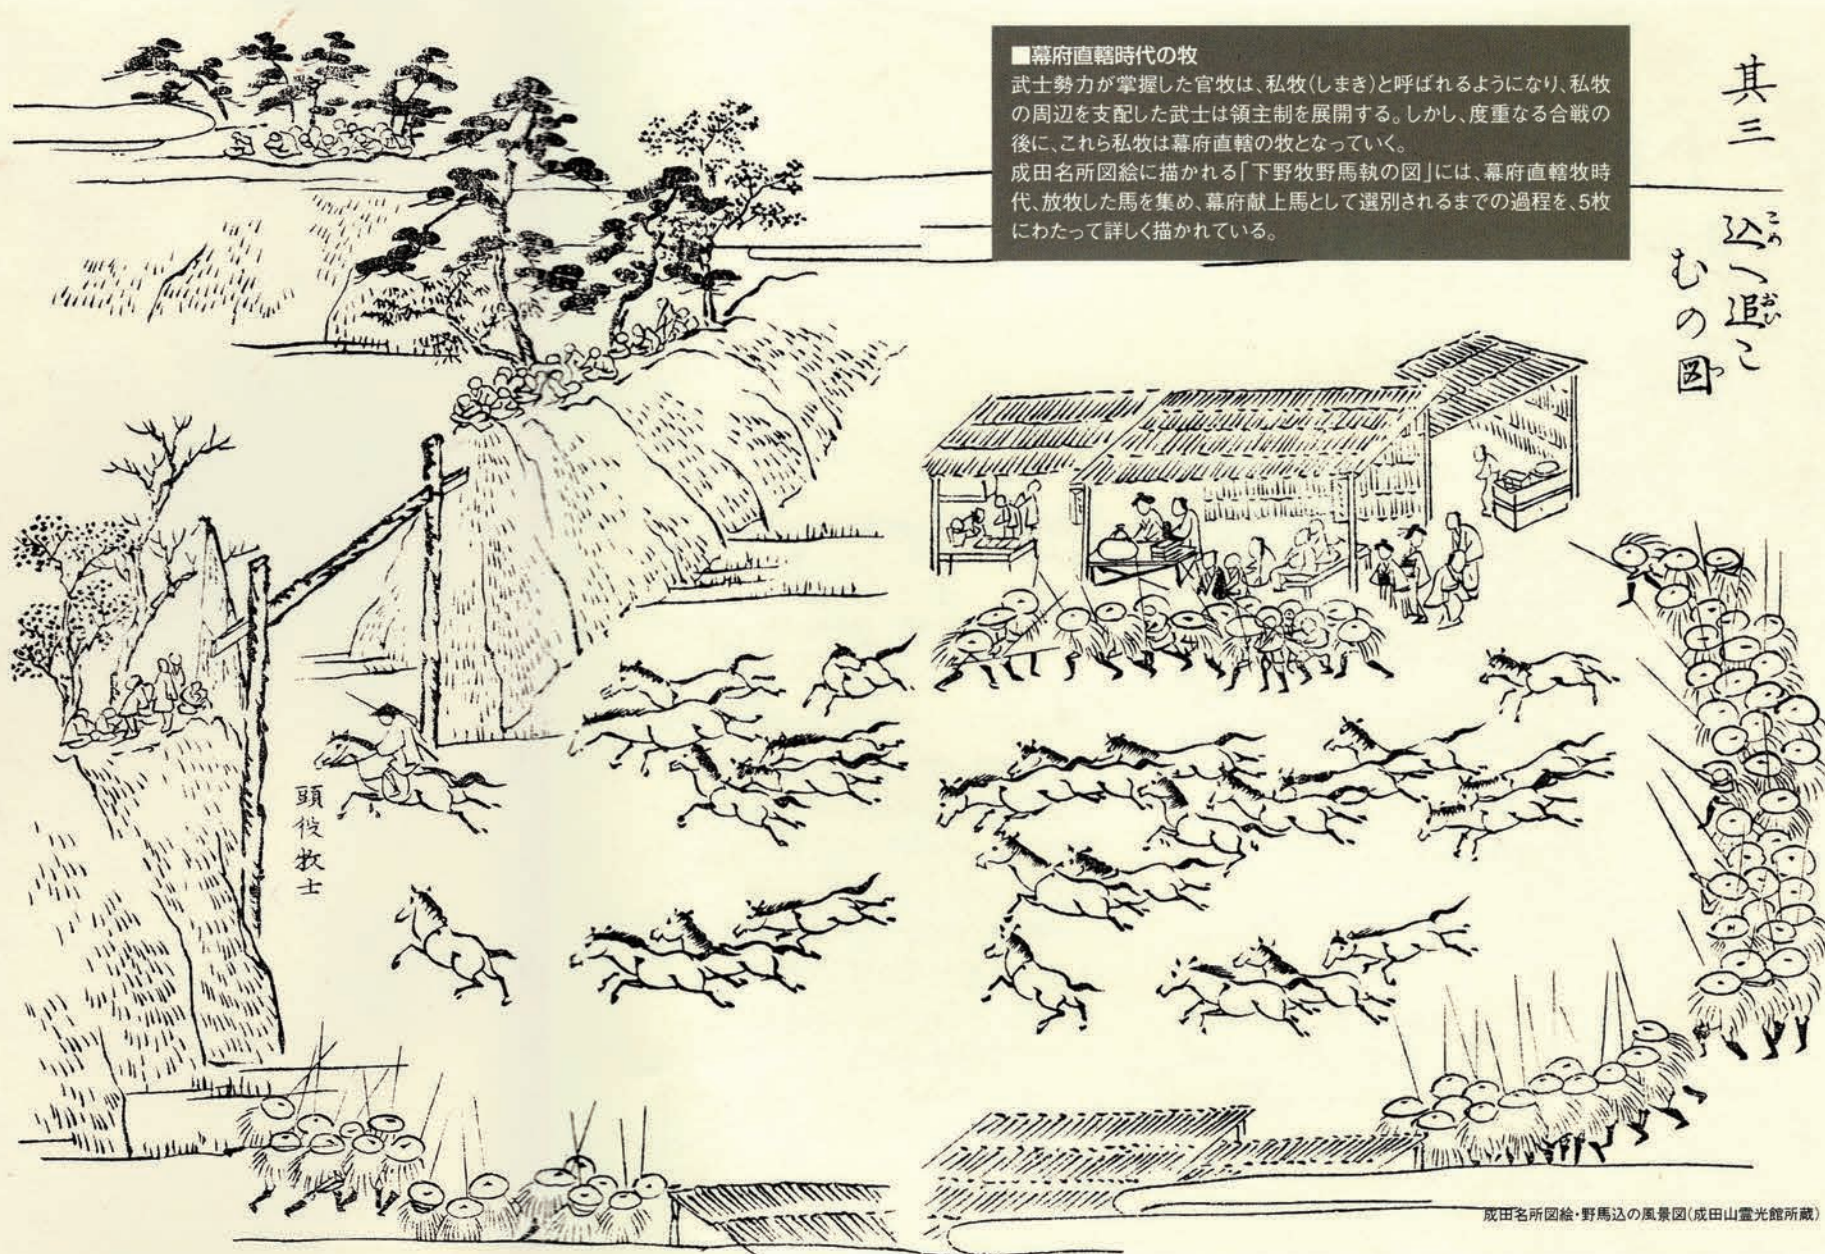 ■幕府直轄時代の牧
武士勢力が掌握した官牧は、私牧(しまき)と呼ばれるようになり、私牧
の周辺を支配した武士は領主制を展開する。しかし、度重なる合戦の
後に、これら私牧は幕府直轄の牧となっていく。
成田名所図絵に描かれる「下野牧野馬執の図」には、幕府直轄牧時
代、放牧した馬を集め、幕府献上馬として選別されるまでの過程を、5枚
にわたって詳しく描かれている。
其三
込へ追こ
こめ
おひ
むの図
頭役牧士
成田名所図絵・野馬込の風景図(成田山霊光館所蔵)